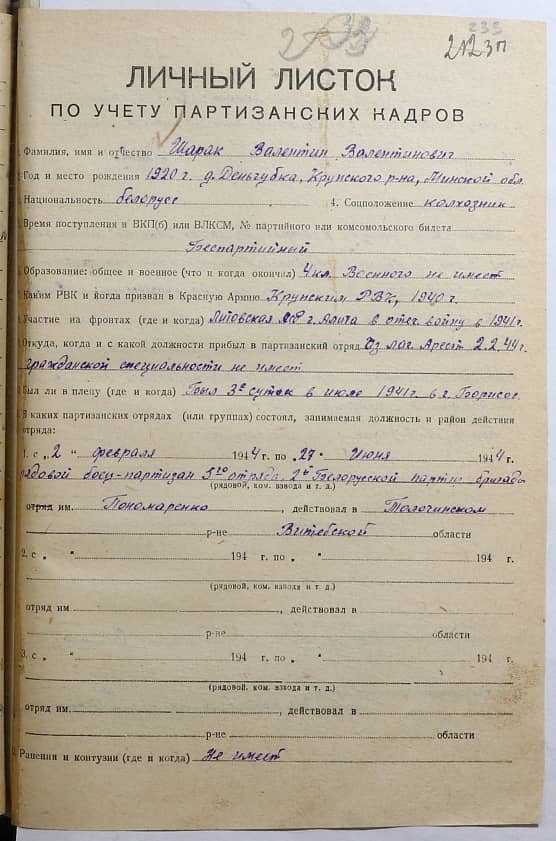 235
212 зп
ЛИЧНЫЙ ЛИСТОК
ПО УЧЕТУ ПАРТИЗАНСКИХ КАДРОВ
Фамилия, имя и отчество Шарак Валентин Валентинович
Год и место рождения 1920 г. д. Деньгубка, Крупского р-на, Минской обл.
Национальность белорусс 4. Соцположение колхозник
Время поступления в ВКП(б) или ВЛКСМ, № партийного или комсомольского билета
Беспартийный
Образование: общее и военное (что и когда окончил) 4 кл. Военного не имеет
Каким РВК и когда призван в Красную Армию Крупским РВК, 1940 г.
Участие на фронтах (где и когда) Литовская г. Алита в отеч. войну в 1941 г.
Откуда, когда и с какой должности прибыл в партизанский отряд Из лаг. 2.2.44 г.
гражданской специальности не имеет
Был ли в плену (где и когда) Был 3е суток в июле 1941 г. в г. Борисов.
В каких партизанских отрядах (или группах) состоял, занимаемая должность и район действия
отряда:
1. с „2“ февраля 1944 г. по „27“ Июня 1944 г.
рядовой боец-партизан 5го отряда, 2й Белорусской партиз. бригада
(рядовой, ком. взвода и т. д.)
отряд им. Пономаренко, действовал в Толочинском
р-не Витебской области
2. с „ “ 194 г. по „ “ 194 г.
(рядовой, ком. взвода и т. д.)
отряд им , действовал в
р-не области
3. с „ “ 194 г. по „ “ 194 г.
(рядовой, ком. взвода и т. д.)
отряд им. , действовал в
р-не области
Ранения и контузии (где и когда) Не имеет